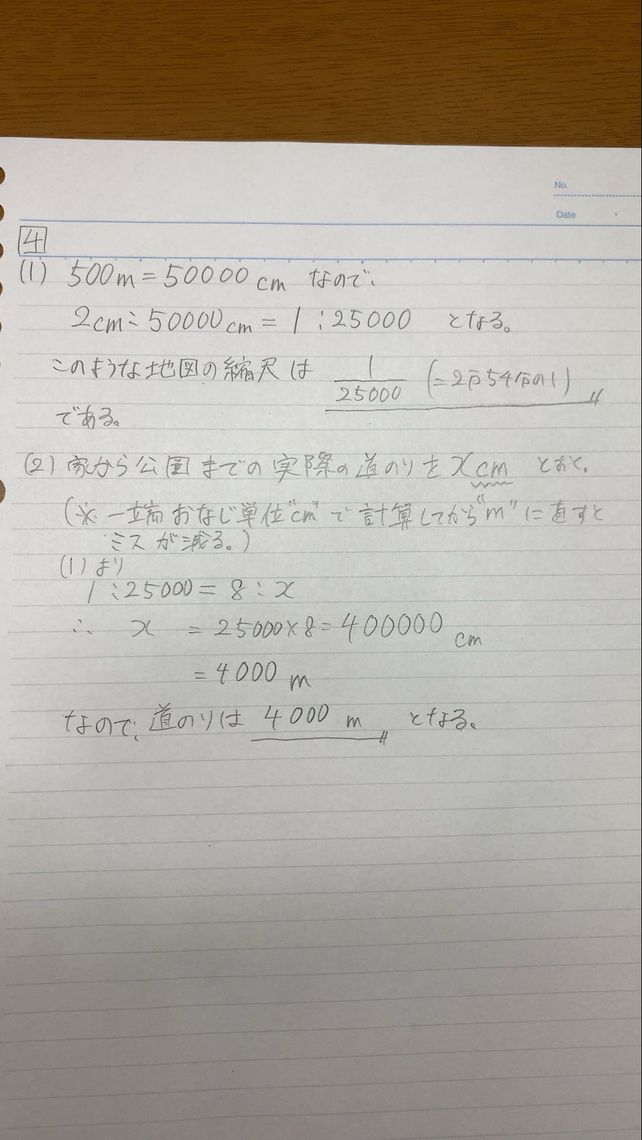 No.
Date
4
(1) 500m = 50000 cm なので、
2cm : 50000cm = 1 : 25000 となる。
このような地図の縮尺は 1/25000 (=2万5千分の1)
である。
(2) 家から公園までの実際の道のりを x cm とおく。
(※ 一端おなじ単位"cm"で計算してから"m"に直すと
ミスが減る。)
(1)より
1 : 25000 = 8 : x
∴ x = 25000×8 = 400000 cm
= 4000 m
なので、道のりは 4000 m となる。